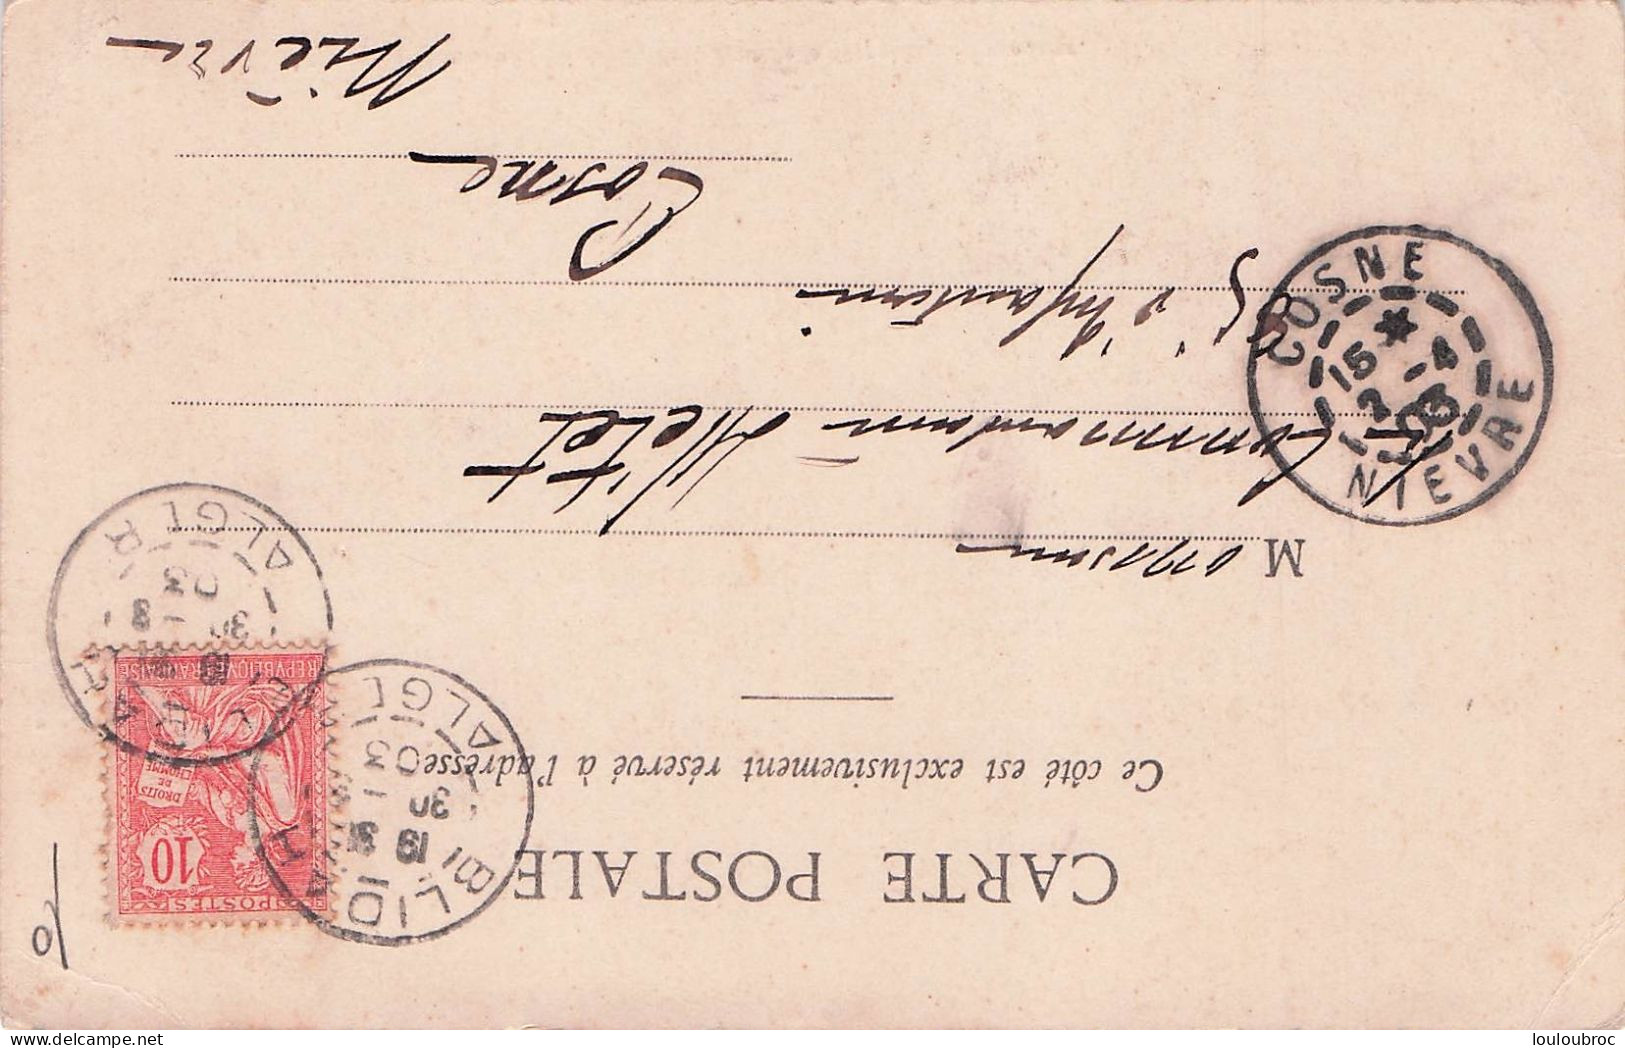 CARTE POSTALE
Ce côté est exclusivement réservé à l'adresse
POSTES
10
DROITS
DE
L'HOMME
REPVBLIQVE FRANÇAISE
BLIDA
19
30
03
ALGER
30
03
ALGER
Monsieur
Commandant Metet
d'Infanterie
Cosne
Nièvre
COSNE
15
2 -4
03
NIEVRE
louloubroc